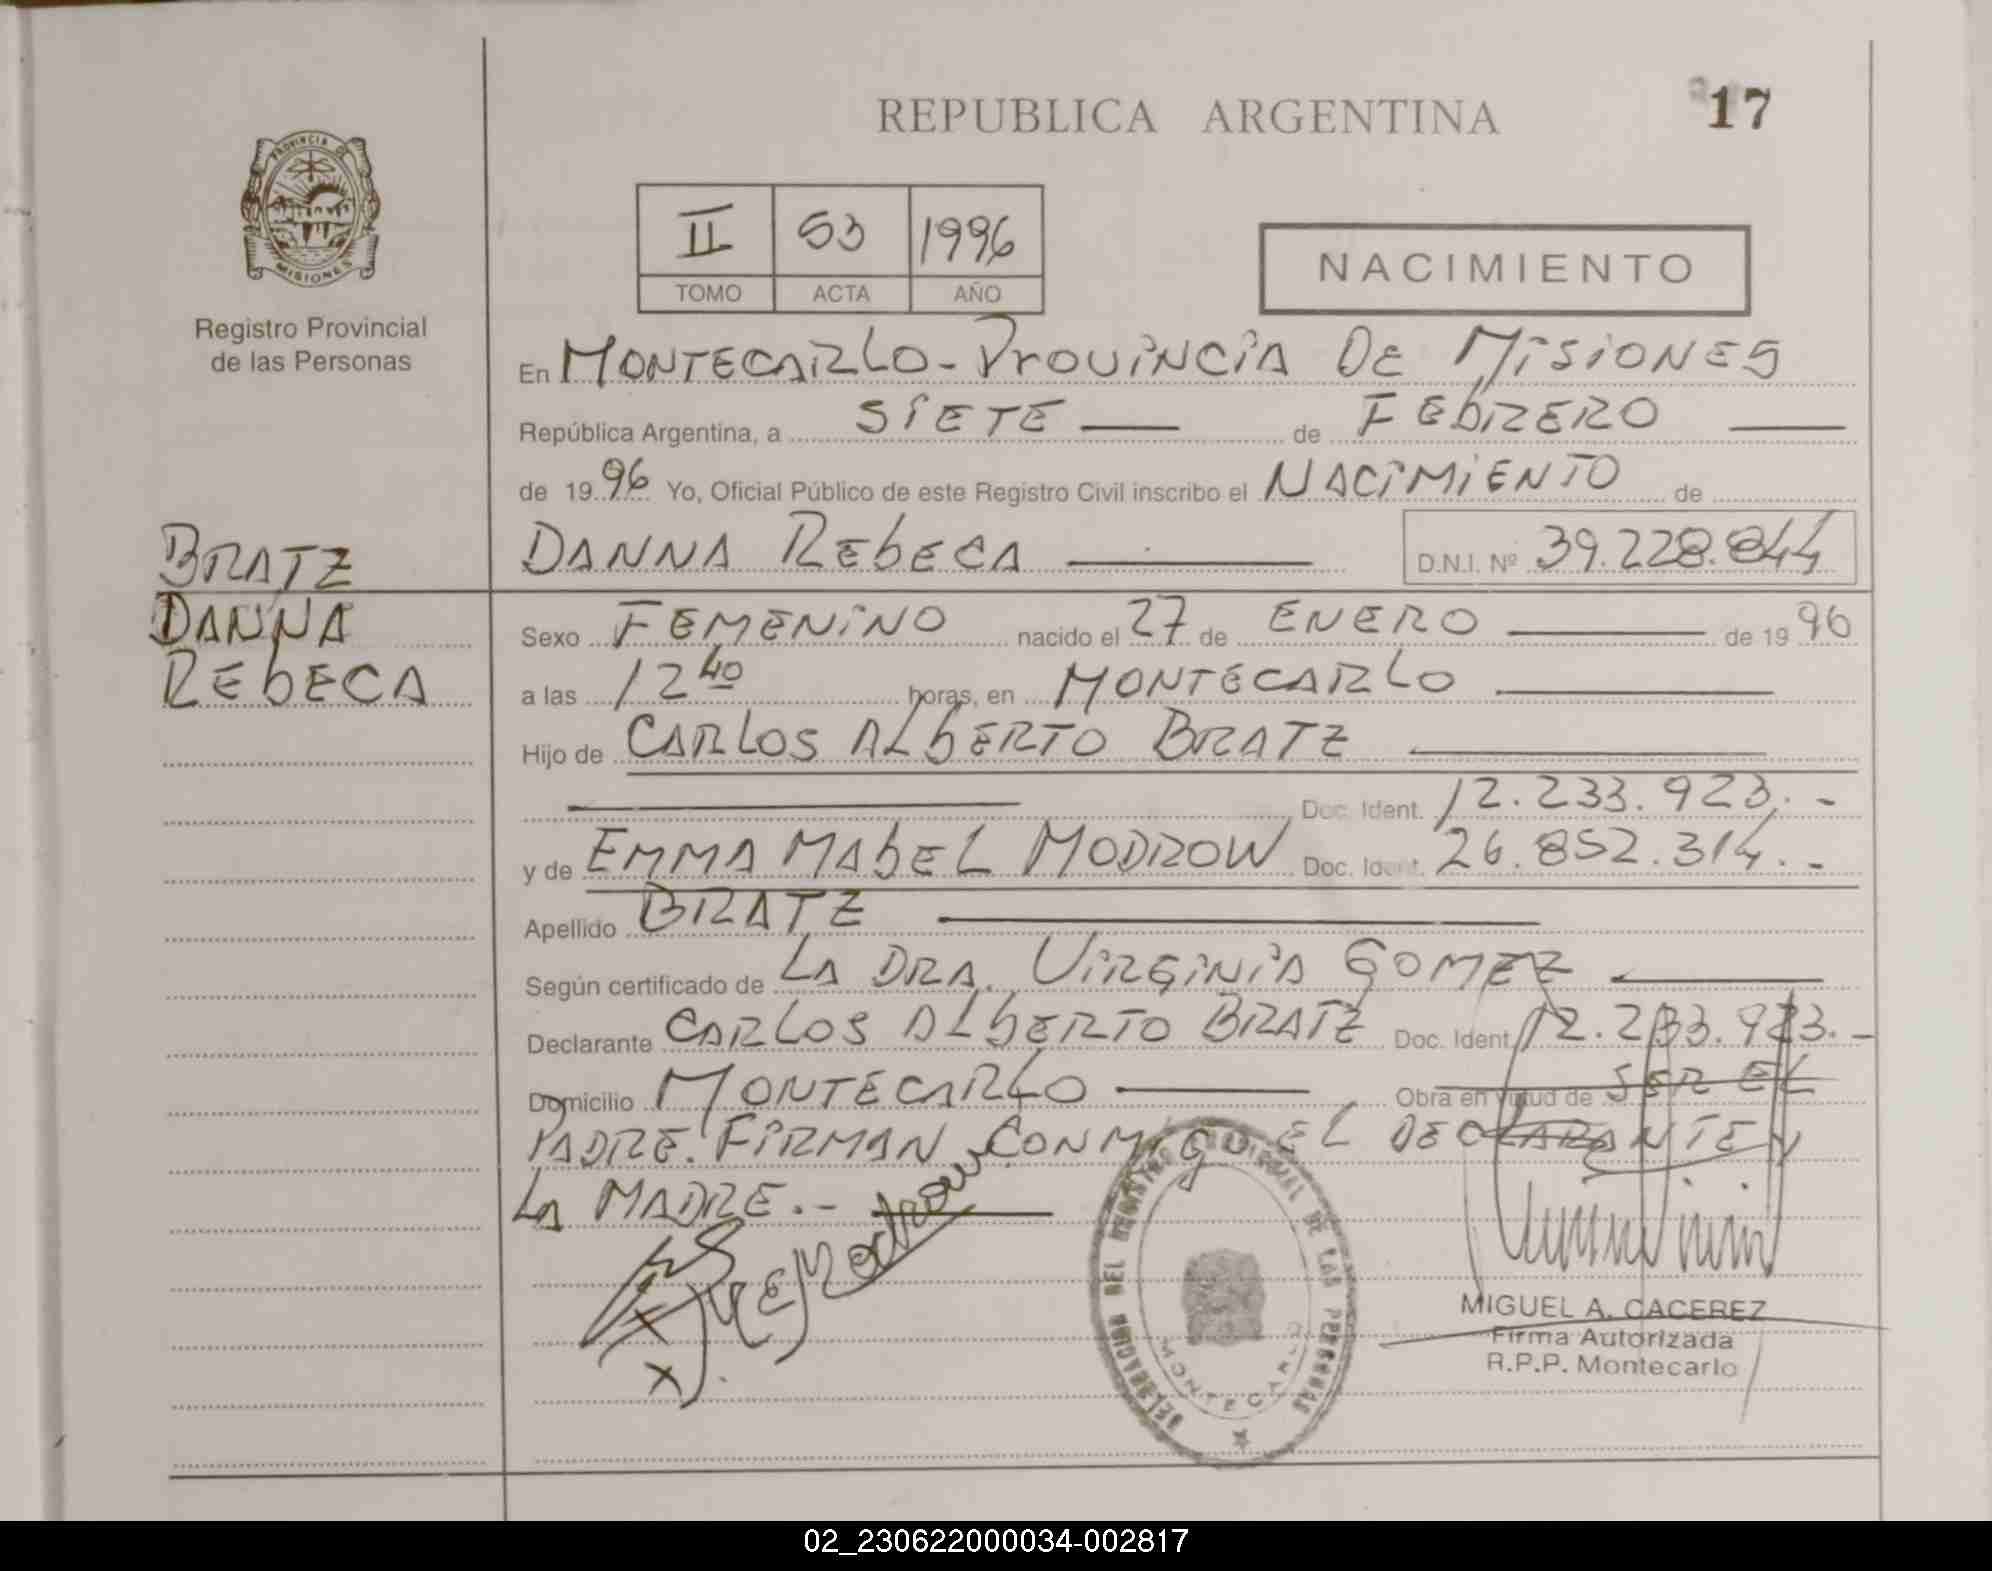 REPUBLICA ARGENTINA
17
PROVINCIA DE
MISIONES
Registro Provincial
de las Personas
II 53 1996
TOMO ACTA AÑO
NACIMIENTO
En MONTECARLO - PROVINCIA DE MISIONES
República Argentina, a SIETE de FEBRERO
de 1996 Yo, Oficial Público de este Registro Civil inscribo el NACIMIENTO de
DANNA REBECA D.N.I. Nº 39.228.844
BRATZ
DANNA
REBECA
Sexo FEMENINO nacido el 27 de ENERO de 1996
a las 12 40 horas, en MONTECARLO
Hijo de CARLOS ALBERTO BRATZ
Doc. Ident. 12.233.923.-
y de EMMA MABEL MODROW Doc. Ident. 26.852.314.-
Apellido BRATZ
Según certificado de LA DRA. VIRGINIA GOMEZ
Declarante CARLOS ALBERTO BRATZ Doc. Ident. 12.233.923.-
Domicilio MONTECARLO Obra en virtud de SER EL
PADRE. FIRMAN CONMIGO EL DECLARANTE Y
LA MADRE.-
Modrow
DEL REGISTRO PROVINCIAL DE LAS PERSONAS
MONTECARLO
MIGUEL A. CACEREZ
Firma Autorizada
R.P.P. Montecarlo
02_230622000034-002817